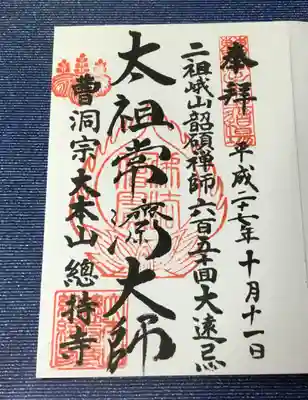 奉拝
平成二十七年十月十一日
二祖峨山韶碩禅師六百五十回大遠忌
太祖常濟大師
曹洞宗大本山總持寺